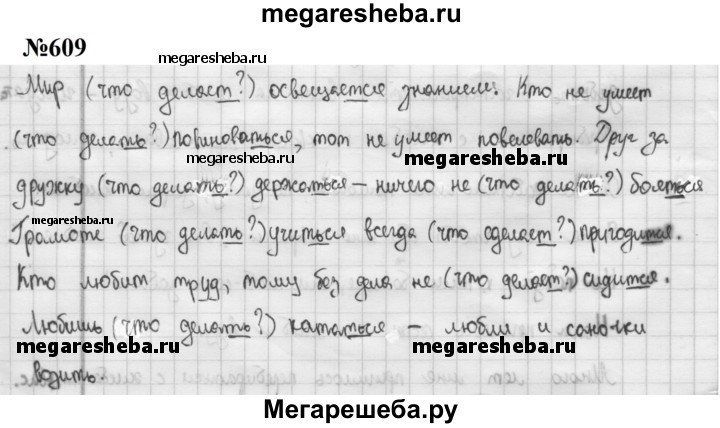 megaresheba.ru
№609
megaresheba.ru
Мир (что делает?) освещается знанием. Кто не умеет
(что делать?) повиноваться, тот не умеет повелевать. Друг за
megaresheba.ru
дружку (что делать?) держаться – ничего не (что делать?) бояться
megaresheba.ru
Грамоте (что делать?) учиться всегда (что сделает?) пригодится.
Кто любит труд, тому без дела не (что делает?) сидится.
Любишь (что делать?) кататься – люби и саночки
megaresheba.ru megaresheba.ru
возить.
Мегарешеба.ру